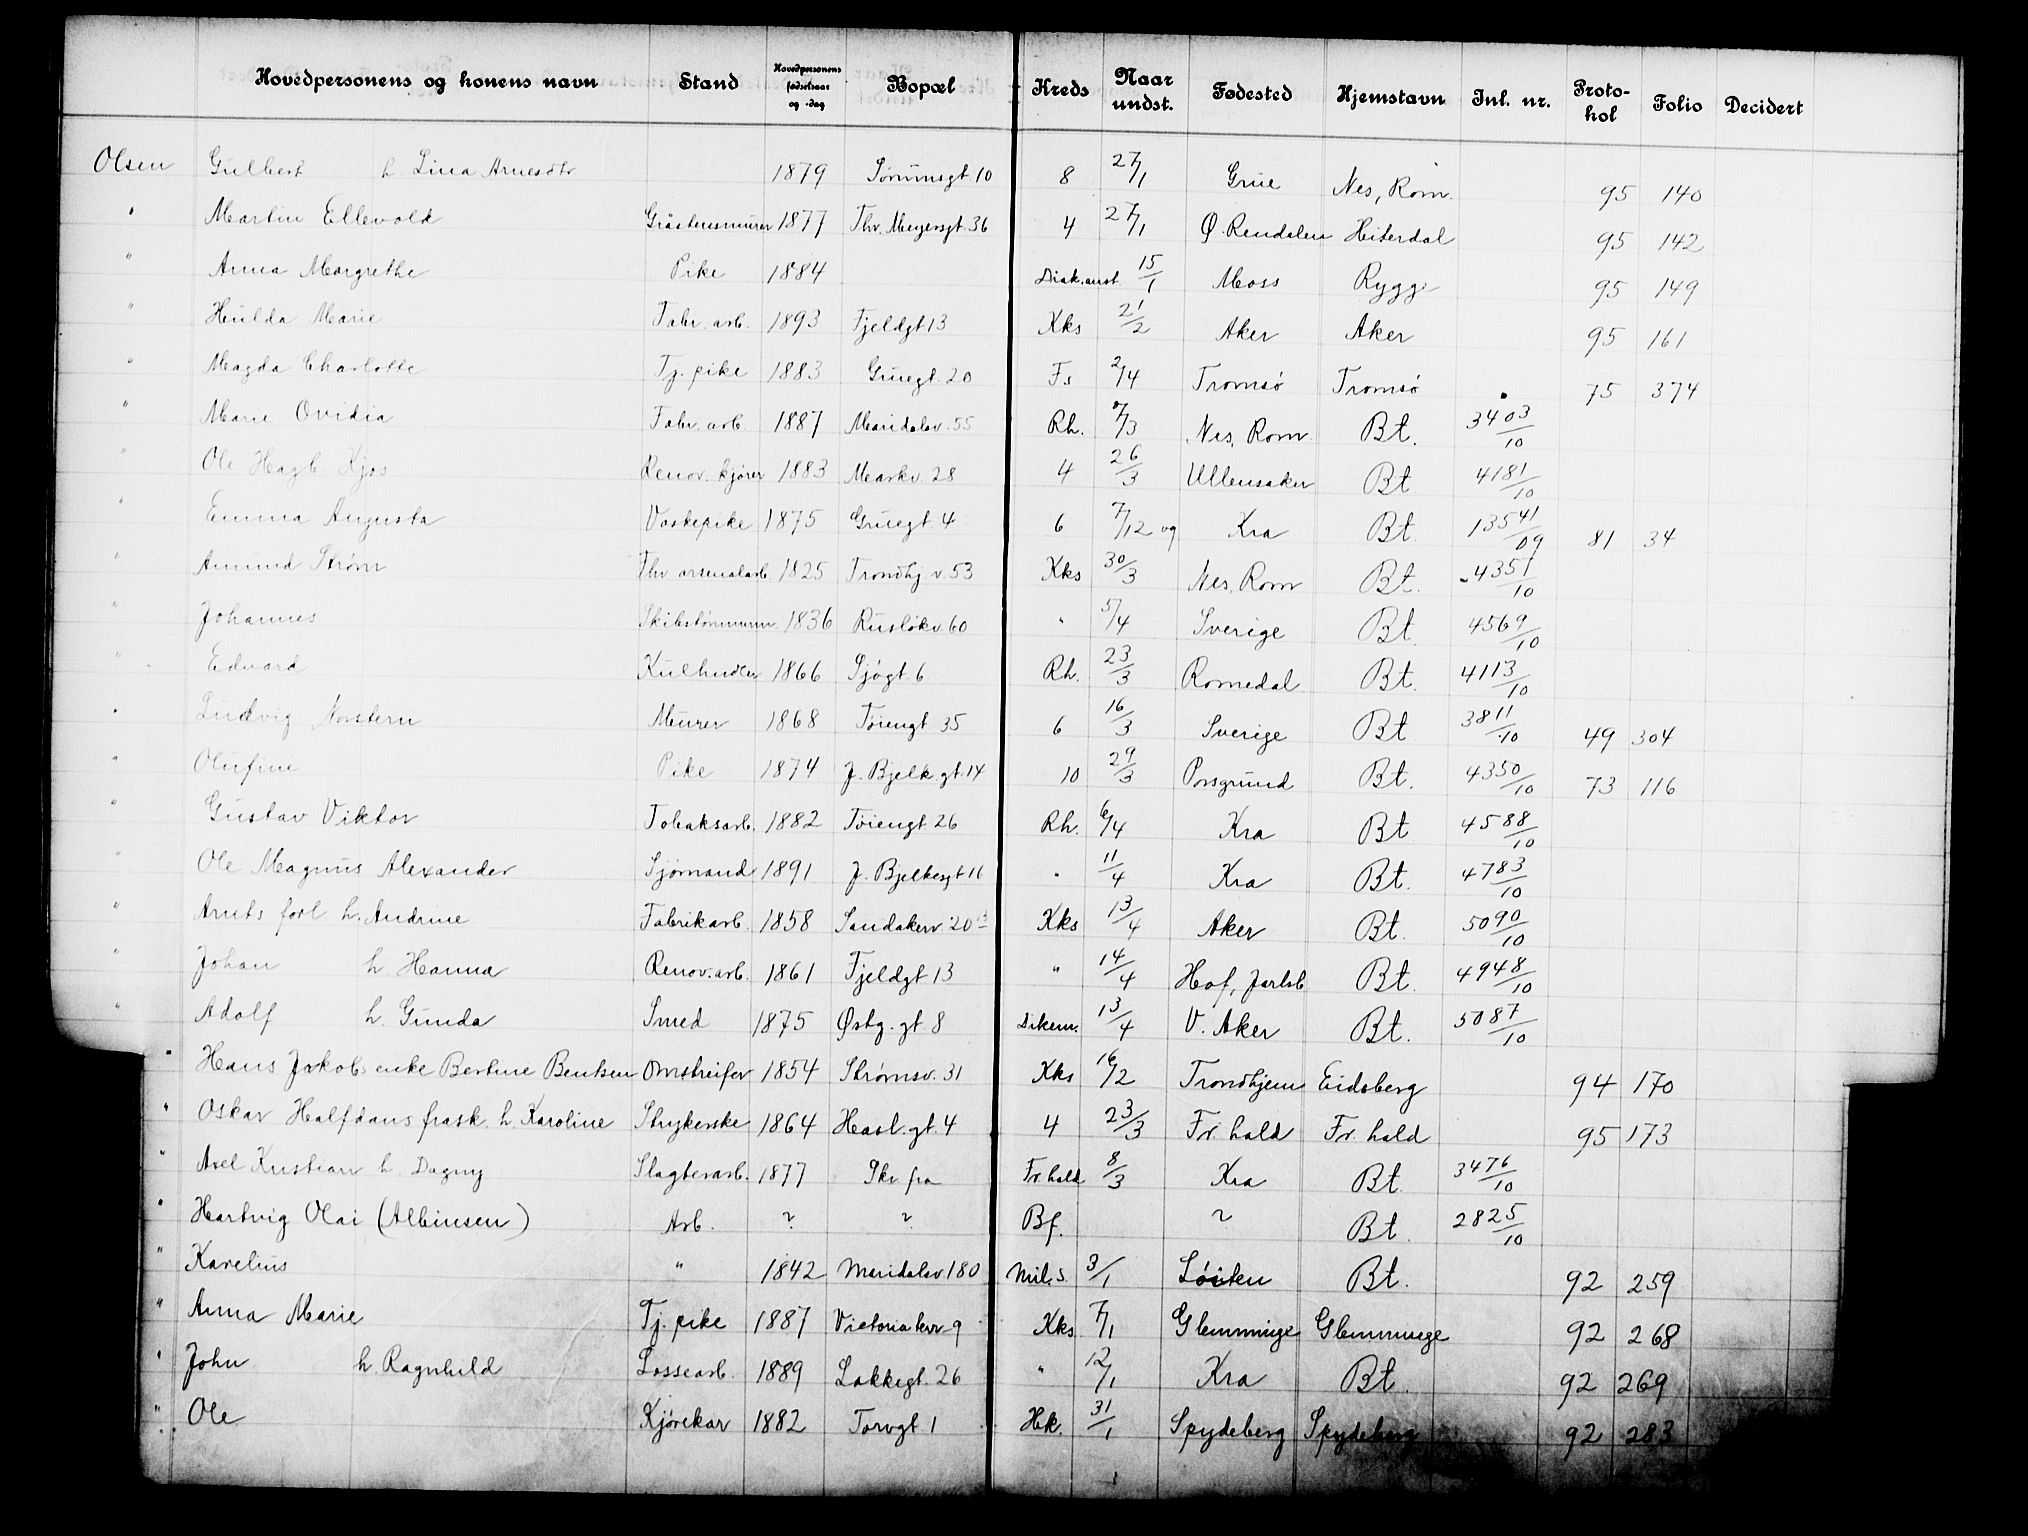 Hovedpersonens og konens navn Stand Hovedpersonens fødselsaar og -dag Bopæl Kreds Naar undst. Fødested Hjemstavn Inl. nr. Proto-kol Folio Decidert
Olsen Gulbert h Lina Arnesdtr 1879 Sørumsgt 10 8 27/1 Grue Nes, Rom. 95 140
" Martin Ellevold Gråstensmurer 1877 Thv. Meyersgt. 36 4 27/1 Ø. Rendalen Hiterdal 95 142
" Anna Margrethe Pike 1884 Diak.anst 15/1 Moss Rygge 95 149
" Hulda Marie Fabr. arb. 1893 Fjeldgt 13 Kks 21/2 Aker Aker 95 161
" Magda Charlotte Tj. pike 1883 Gruegt. 20 Fs 2/4 Tromsø Tromsø 75 374
" Marie Ovidia Fabr. arb. 1887 Maridalsv. 55 Rh. 7/3 Nes, Rom Bt. 3403/10
" Ole Hagb. Kjos Renov. kjører 1883 Markv. 28 4 26/3 Ullensaker Bt. 4181/10
" Emma Augusta Vaskepike 1875 Gruegt 4 6 7/12 09 Kra Bt. 13541/09 81 34
" Amund Strøm Fhv arsenalarb. 1825 Trondhj. v. 53 Kks 30/3 Nes, Rom Bt. 4351/10
" Johannes Skibstømmerm. 1836 Ruseløkv. 60 " 5/4 Sverige Bt. 4569/10
" Edvard Kulhandler 1866 Sjøgt 6 Rh. 23/3 Romedal Bt. 4113/10
" Ludvig Norstern Murer 1868 Tøiengt 35 6 16/3 Sverige Bt 3811/10 49 304
" Olufine Pike 1874 J. Bjelk gt. 14 10 29/3 Porsgrund Bt. 4350/10 73 116
" Gustav Viktor Tobaksarb. 1882 Tøiengt 26 Rh. 6/4 Kra Bt 4588/10
" Ole Magnus Alexander Sjømand 1891 J. Bjelkesgt 16 " 11/4 Kra Bt. 4783/10
" Arnts forl. h. Andrine Fabrikarb. 1858 Sandakerv. 20 Kks 13/4 Aker Bt. 5090/10
" Johan h. Hanna Renov. arb. 1861 Fjeldgt 13 " 14/4 Hof, Jarlsb Bt. 4948/10
" Adolf h. Gunda Smed 1875 Østg. gt 8 Dikem. 13/4 V. Aker Bt. 5087/10
" Hans Jakobs enke Bertine Bentsen Omstreifer 1854 Strømsv. 31 Kks 16/2 Trondhjem Eidsberg 94 170
" Oskar Halfdans frask. h. Karoline Strykerske 1864 Hasl. gt. 4 4 23/3 Fr. hald Fr. hald 95 173
" Axel Kristian h. Dagny Slagterarb. 1877 Skr fra Fr. hald 8/3 Kra Bt. 3476/10
" Hartvig Olai (Albinsen) Arb. ? ? Bf. ? Bt. 2825/10
" Karelius " 1842 Maridalsv 180 Mil. S. 3/1 Løiten Bt. 92 259
" Anna Marie Tj. pike 1887 Victoria terr. 9 Kks 7/1 Glemminge Glemminge 92 268
" John h. Ragnhild Lossearb. 1889 Lakkegt. 26 " 12/1 Kra Bt. 92 269
" Ole Kjørekar 1882 Torvgt 1 Hk. 31/1 Spydeberg Spydeberg 92 283